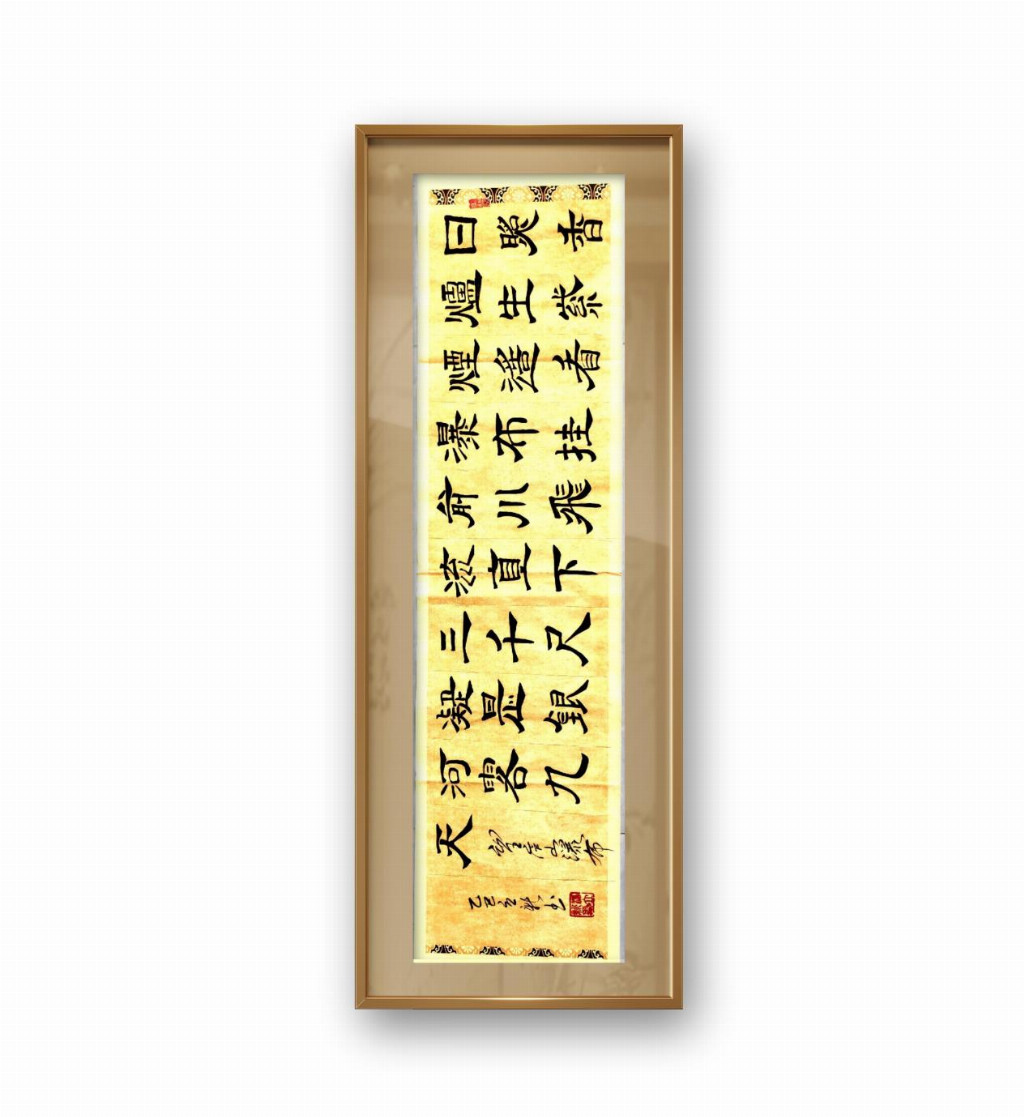 日照香
爐生紫
煙遥看
瀑布挂
前川飛
流直下
三千尺
疑是銀
河落九
天
望庐山瀑布
乙巳书